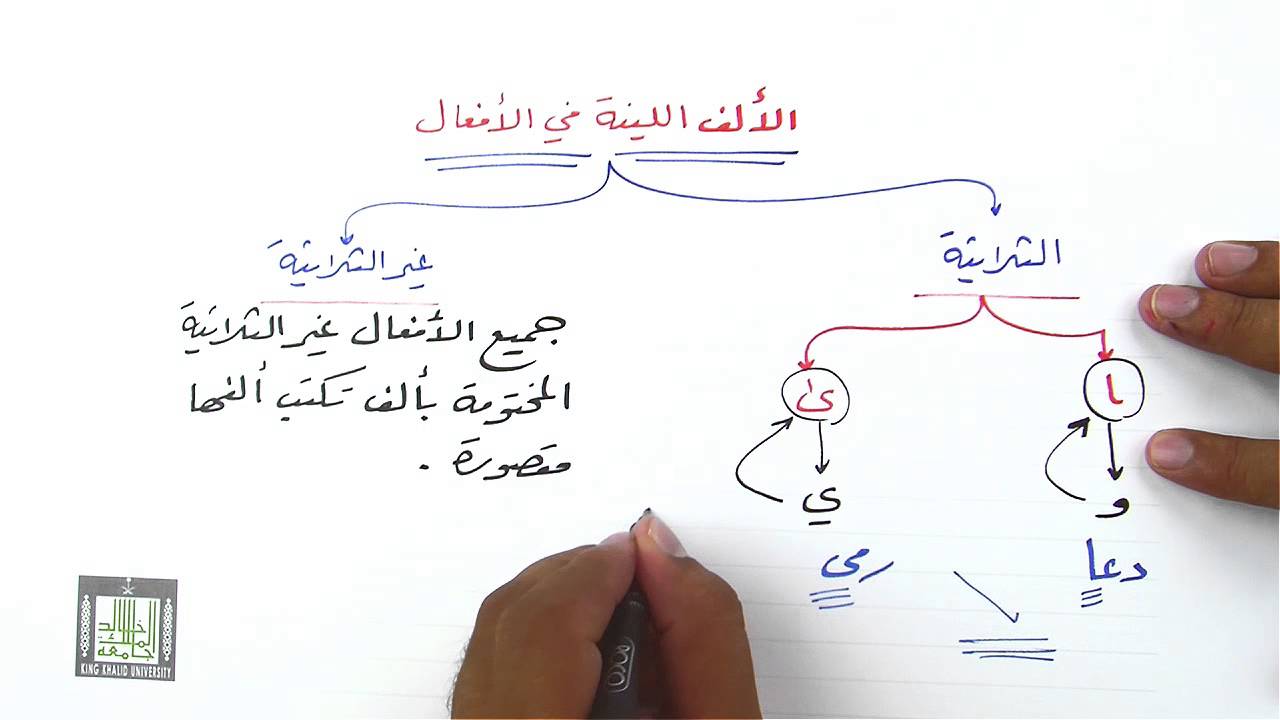 الألف اللينة في الأفعال
الثلاثية
ا
ىٰ
و
ي
دعا
رمى
غير الثلاثية
جميع الأفعال غير الثلاثية
المختومة بألف تكتب ألفها
مقصورة .
جامعة الملك خالد
KING KHALID UNIVERSITY